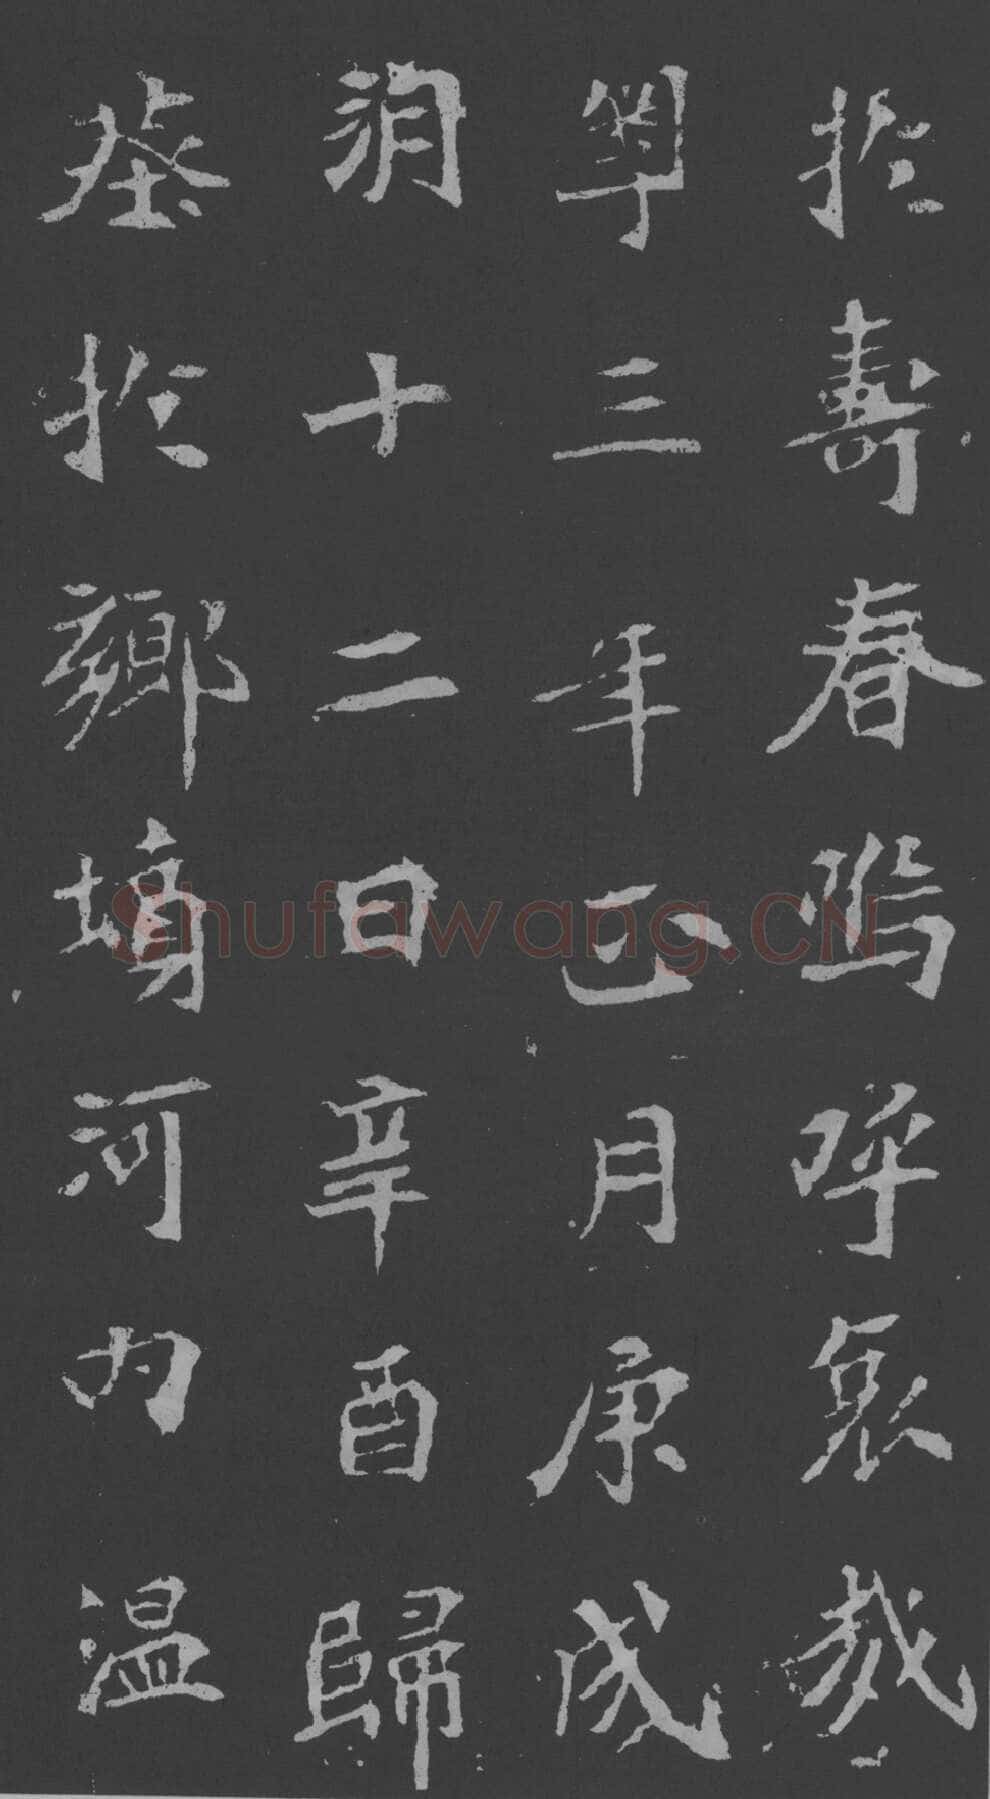 於壽春嗚呼哀哉
粤三年正月庚戌
朔十二日辛酉歸
葬於鄉墳河内温
Shufawang.CN